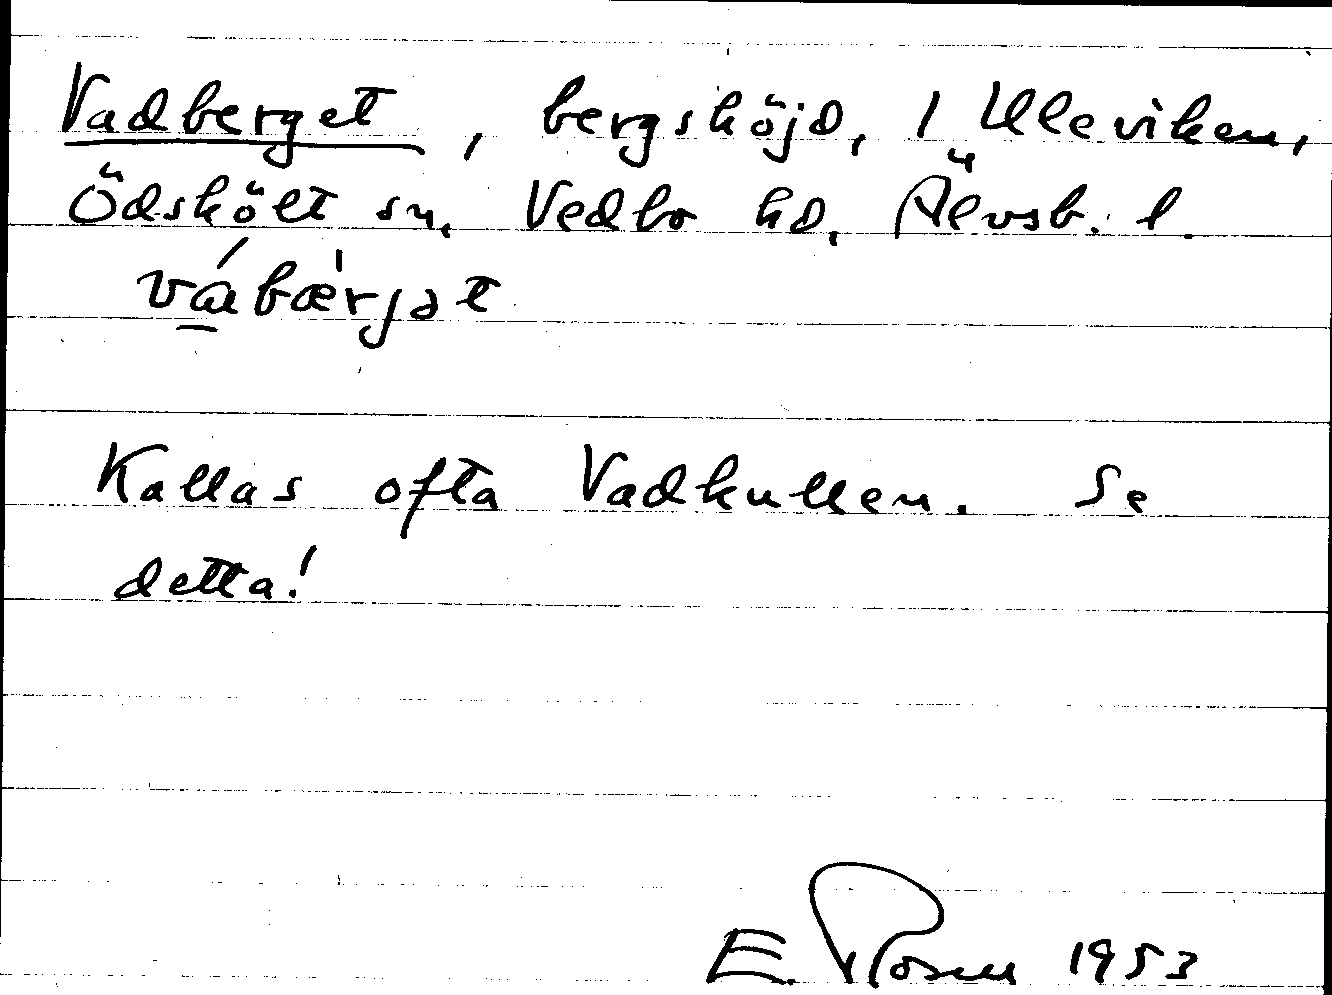 Vadberget, bergshöjd, 1 Uleviken,
Ödskölt sn, Vedbo hd, Älvsb. l.
vábær̍jət
Kallas ofta Vadkullen. Se
detta!
E. Rosell 1953